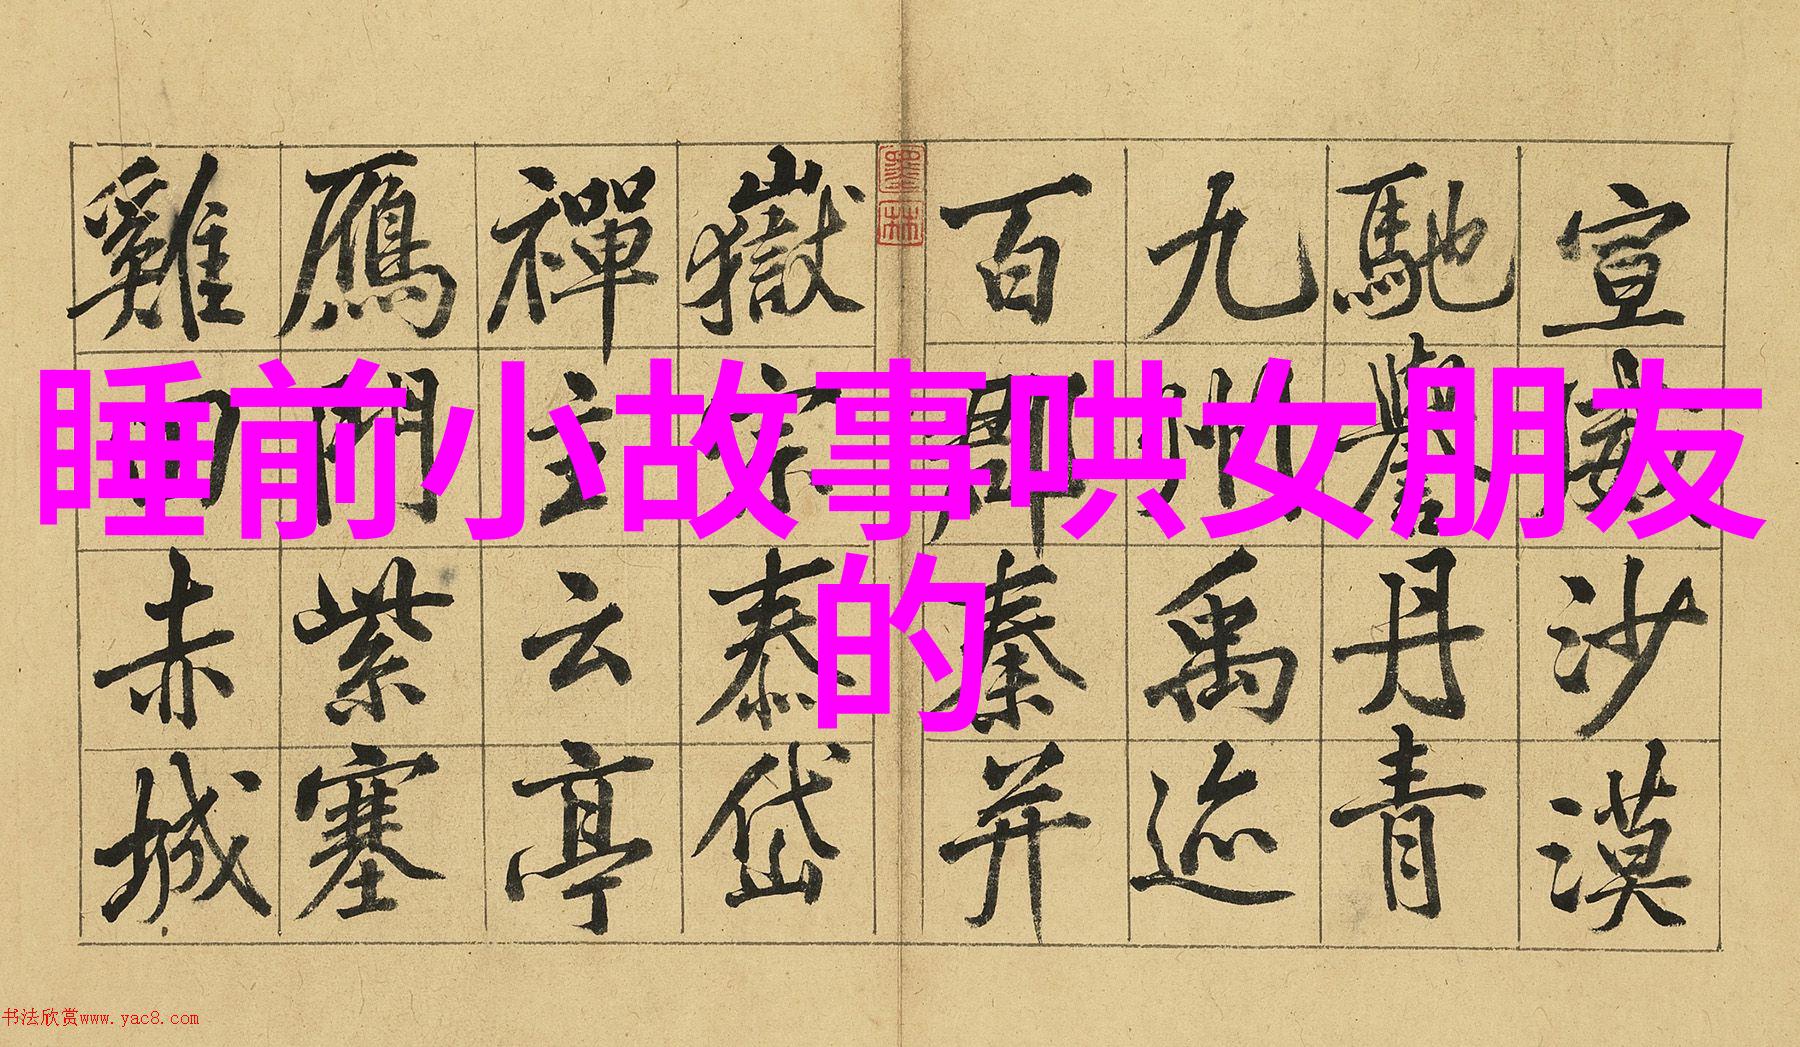 睡前小故事哄女朋友
的
宣威沙漠
馳譽丹青
九州禹迹
百郡秦并
嶽宗泰岱
禪主云亭
鴈門紫塞
雞田赤城
墨林
书法欣赏www.yac8.com